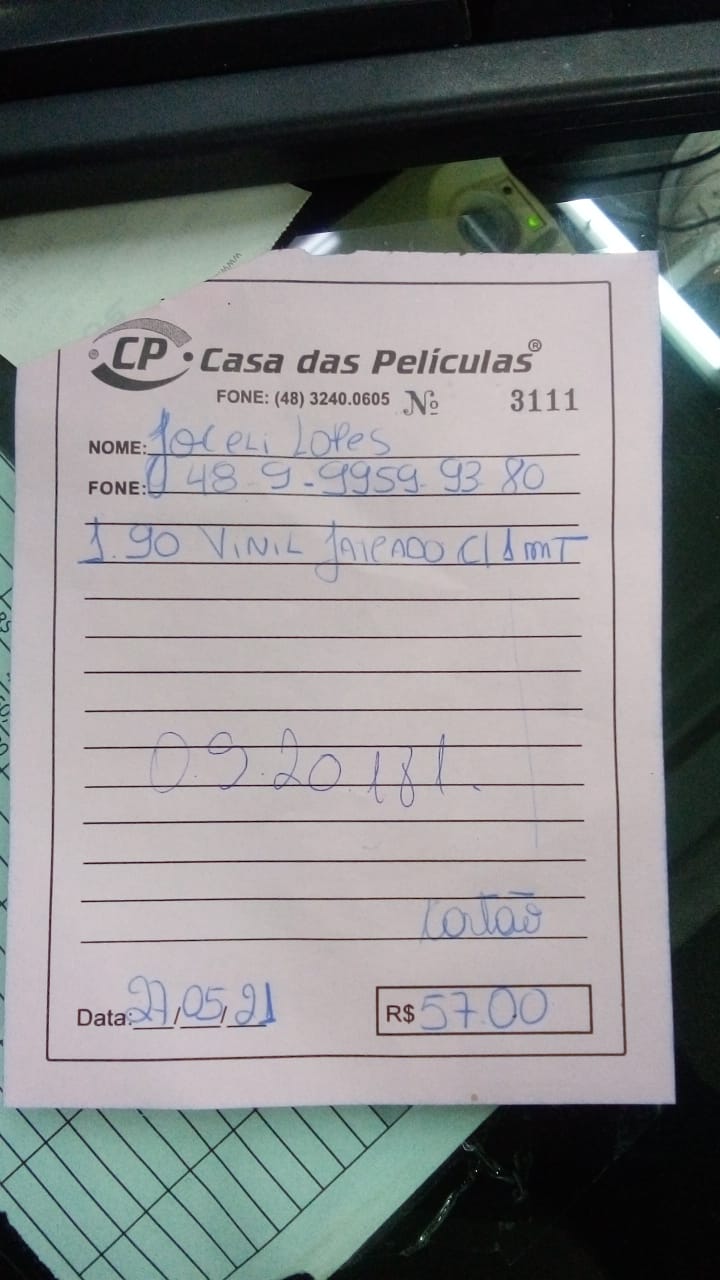 CP • Casa das Películas®
FONE: (48) 3240.0605 Nº 3111
NOME: Joceli Lopes
FONE: 48-9-9959-93 80
1.90 VINIL JATEADO C/ 1 MT
09.20181.
Cartão
Data: 27/05/21
R$ 57.00